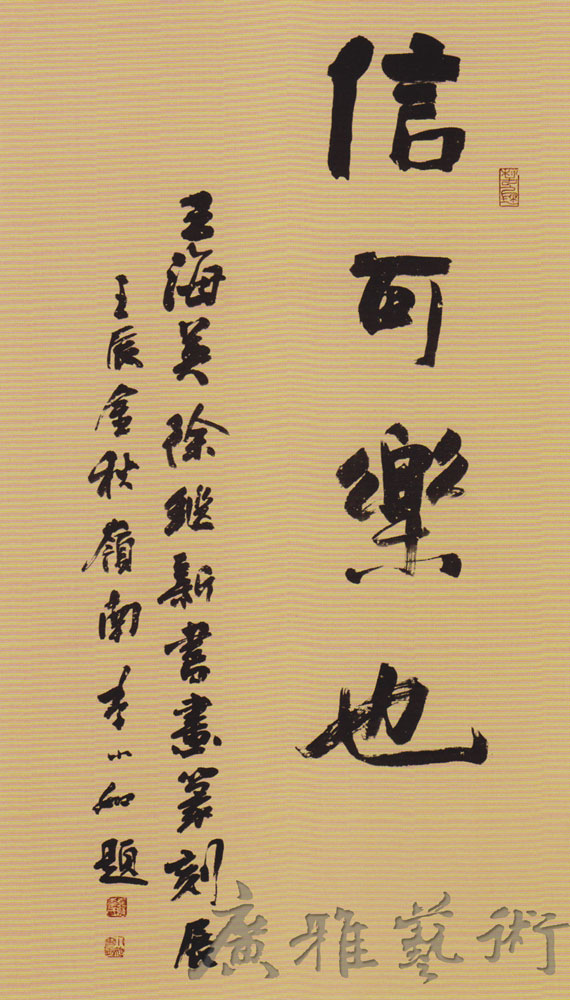 信可樂也
王海英徐繼新書畫篆刻展
壬辰金秋嶺南李小如題
廣雅藝術